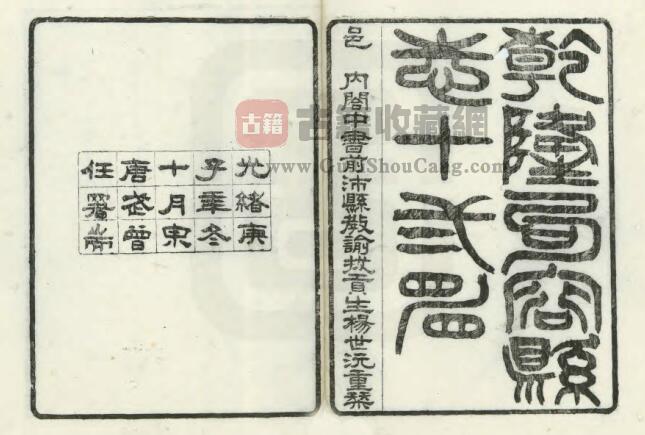 乾隆句容縣
志十弍
邑 內閣中書前沛縣教諭拔貢生楊世沅重槧
光緒庚
子年冬
十月宋
唐曾
任署耑
古籍
古籍收藏網
www.GuJiShouCang.com